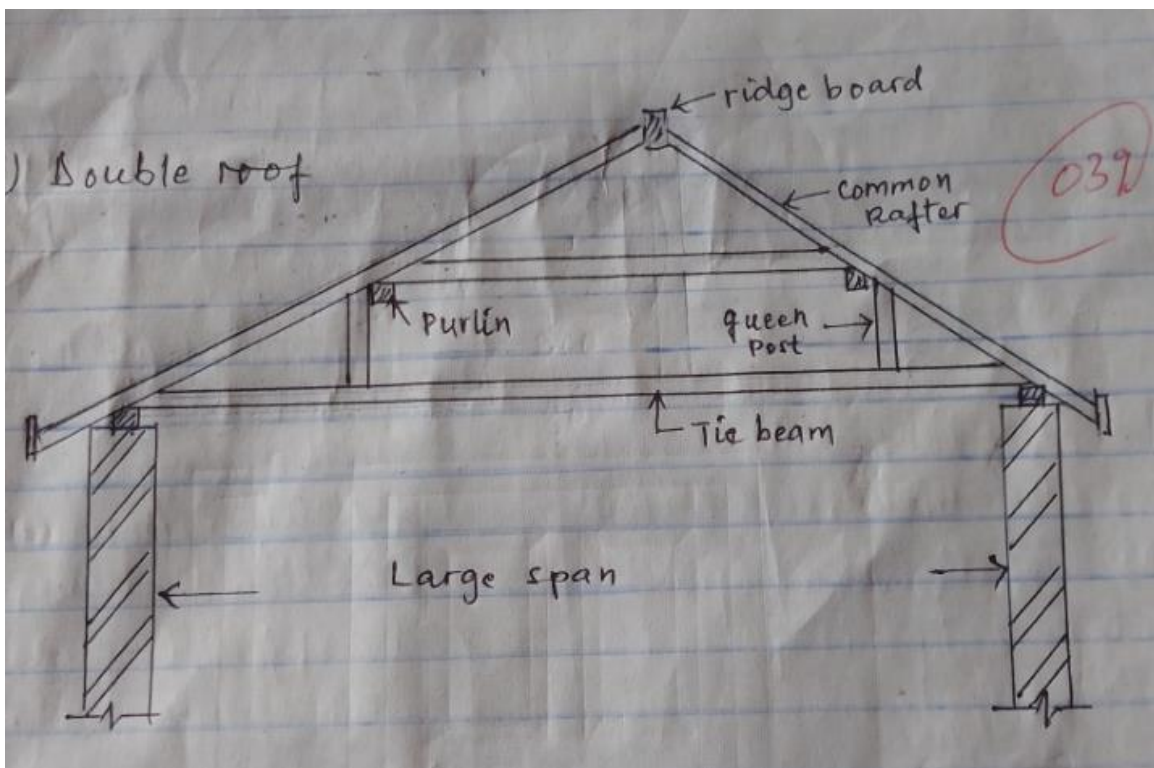 ridge board
) Double roof
common
Rafter
039
Purlin
queen
post
Tie beam
Large span